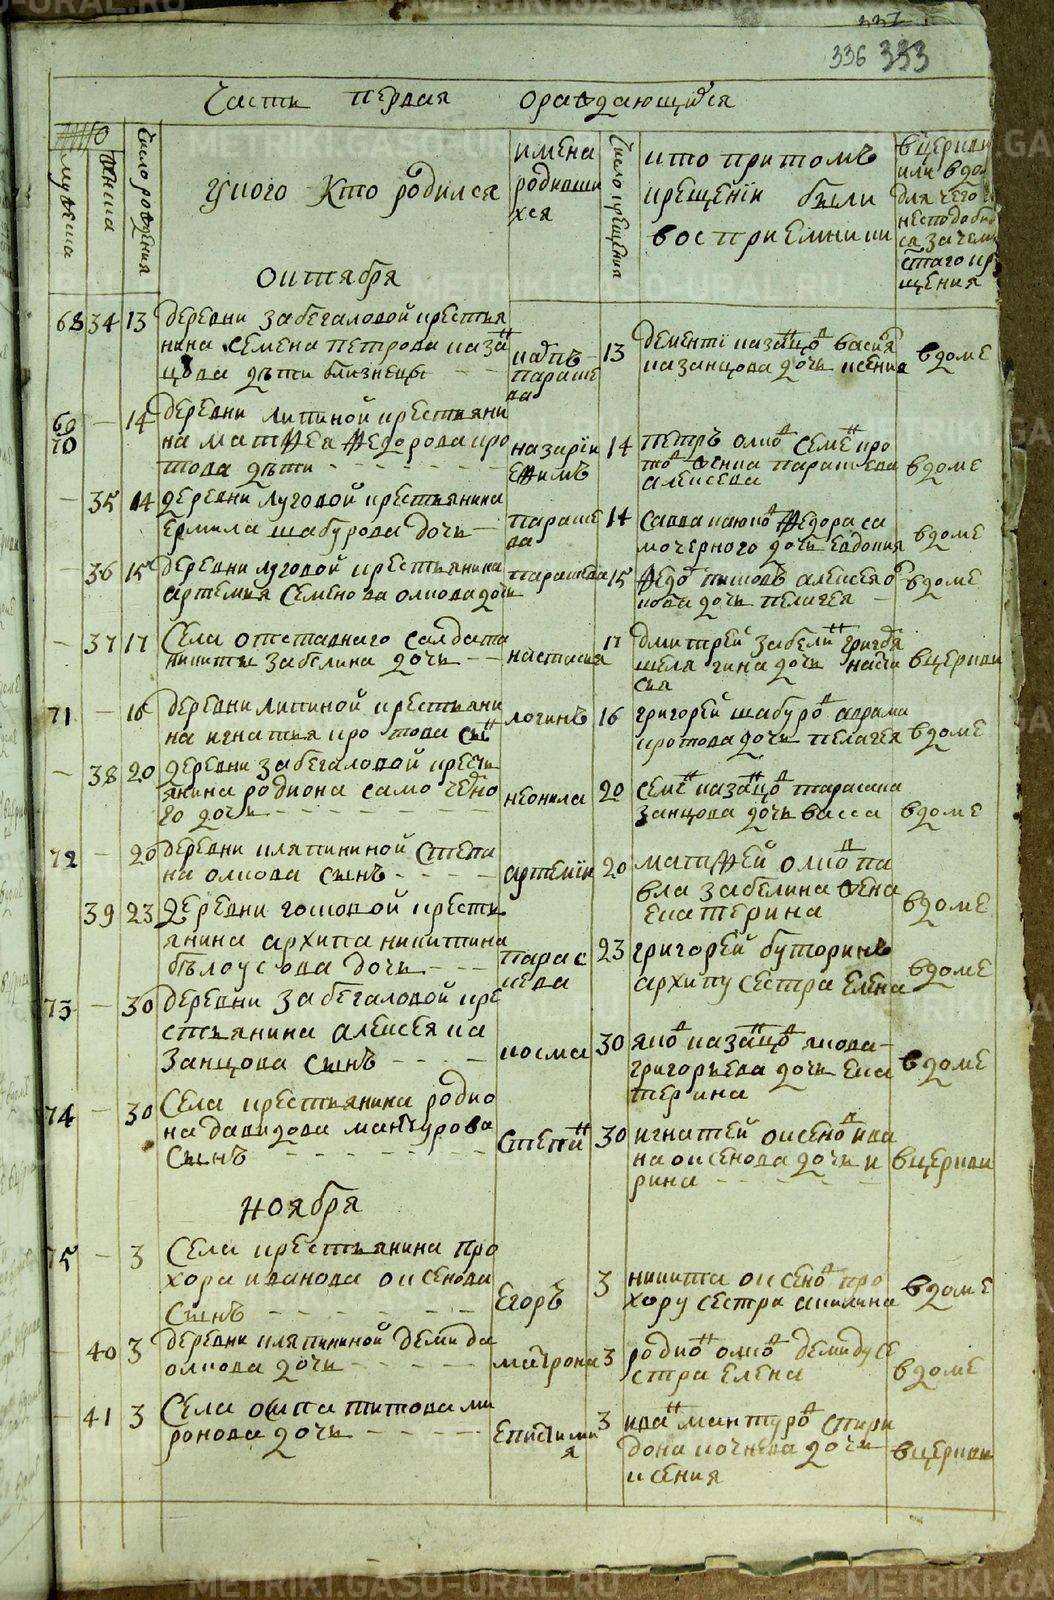 336 333
Часть первая ораждающихся
число рождения
мужеска
женска
у кого кто родился
имена
родивши
хся
число крещения
кто притомъ
крещенiи были
восприемники
вцеркви
или вдо
для чего
неспод
сазачем
стаго кр
щения
октября
68 34 13 деревни забегаловой крестья
нина семена петрова каза
цова дѣти близнецы
карпъ
параске
ва
13
дементi казанцов васил
казанцова дочь ксения
вдоме
69
70
— 14 деревни липиной крестьяни
на матѳея ѳедорова кро
това дѣти
назарiи
еѳимъ
14
петръ олков семен кро
тов жена параскева
алексева
вдоме
— 35 14 деревни луговой крестьянина
ермила шабурова дочь
параске
ва
14
савва каюков ѳедора са
мочерного дочь евдокия
вдоме
— 36 15 деревни луговой крестьянина
артемия семенова олкова дочь
параскева
15
ѳедо алексея
кова дочь пелагея
вдоме
— 37 17 села отставного салдата
никиты забелина дочь
настасия
17
дмитрей забелин григоря
шелягина дочь наста
сья
вцеркви
71 — 16 деревни липиной крестьяни
на игнатья кротова сын
логинъ
16
григорей шабуров аврама
кротова дочь пелагея
вдоме
— 38 20 деревни забегаловой кресть
янина родиона самочерно
го дочь
неонила
20
семен казанцов тараса ка
занцова дочь васса
вдоме
72 — 20 деревни кляпининой степа
на олкова сынъ
артемiи
20
матѳей олков па
вла забелина жена
екатерина
вдоме
39 23 деревни гошовой кресть
янина архипа никитина
бѣлоусова дочь
параск
кева
23
григорей буторинъ
архипу сестра елена
вдоме
73 — 30 деревни забегаловой кре
стьянина алексея ка
занцова сынъ
косма
30
яков казанцов якова
григорьева дочь ека
терина
вдоме
74 — 30 села крестьянина родио
на давидова мантурова
сынъ
степан
30
игнатей оксенов ива
на оксенова дочь и
рина
вцеркви
ноября
75 — 3 села крестьянина про
хора иванова оксенова
сынъ
егоръ
3
никита оксенов про
хору сестра акилина
вдоме
40 3 деревни кляпининой демида
олкова дочь
матрона
3
родион олков демиду се
стра елена
вдоме
— 41 3 села осипа титова ми
ронова дочь
епистими
я
3
иван мантуров спири
дона кочнева дочь
ксения
вцеркви
METRIKI.GASU-URAL.RU